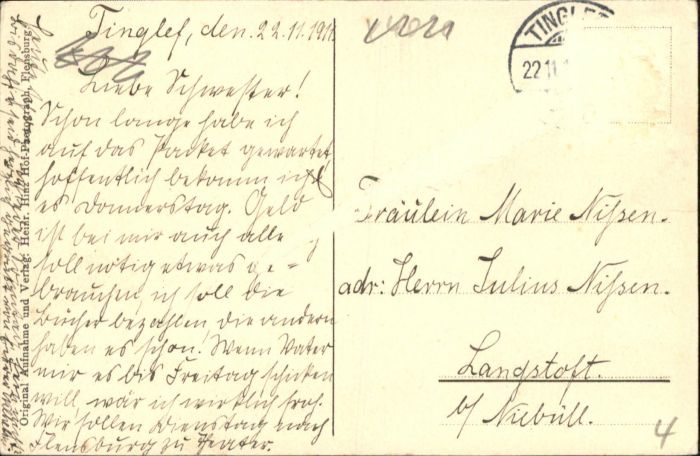 Tinglef, den. 22.11.1911
Liebe Schwester!
Schon lange habe ich
auf das Packet gewartet
hoffentlich bekomm ich
es Donnerstag. Geld
ist bei mir auch alle
soll nötig etwas ge=
brauchen, ich soll die
Bücher bezahlen die andern
haben es schon! Wenn Vater
mir es bis Freitag schicken
will, wär ich wirklich froh.
Wir sollen Dienstag nach
Flensburg zu Theater.
Original Aufnahme und Verlag: Heinr. Hinz Hof-Photograph, Flensburg.
TINGLEF
22.11.
Fräulein Marie Nißen.
adr: Herrn Julius Nißen.
Langstoft.
b/ Niebüll.
4